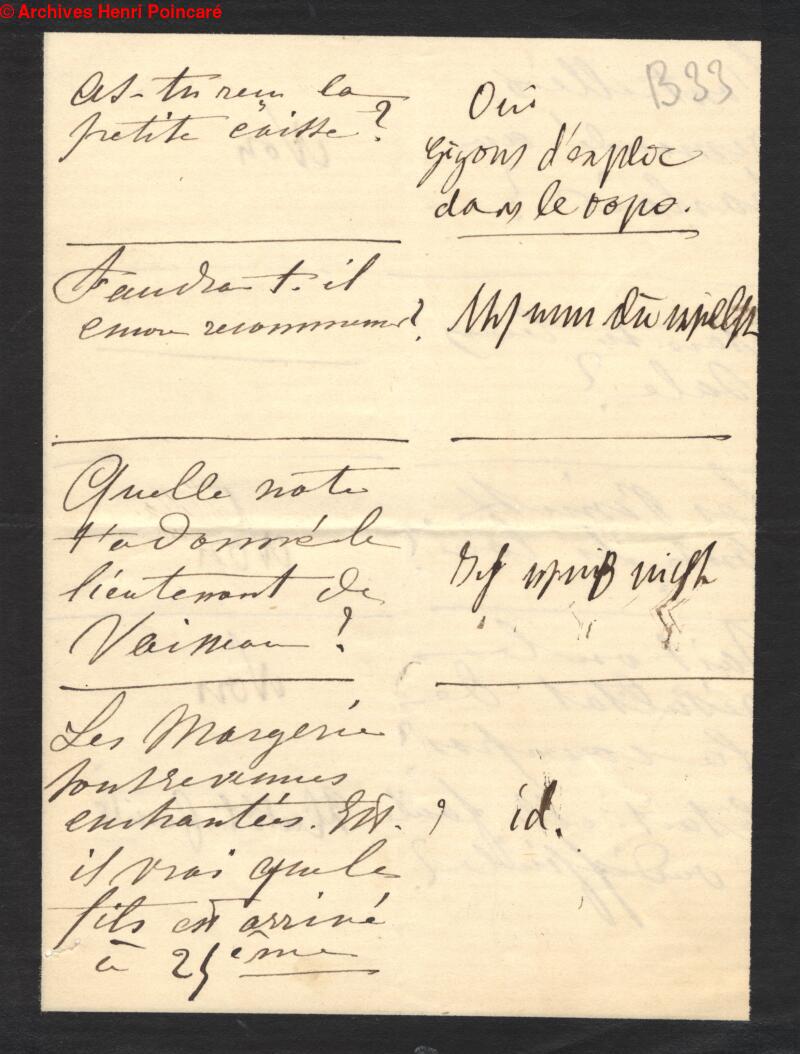 © Archives Henri Poincaré
B33
As-tu reçu la
petite caisse ?
Oui
Gigons d'exploc
dans le oops.
Faudra-t-il
encore recommencer ?
du
Quelle note
t'a donné le
lieutenant de
Vaisseau ?
Ich weiß nicht
Les Margerie
sont revenues
enchantées. Est-
il vrai que le
fils est arrivé
à 25ème
id.